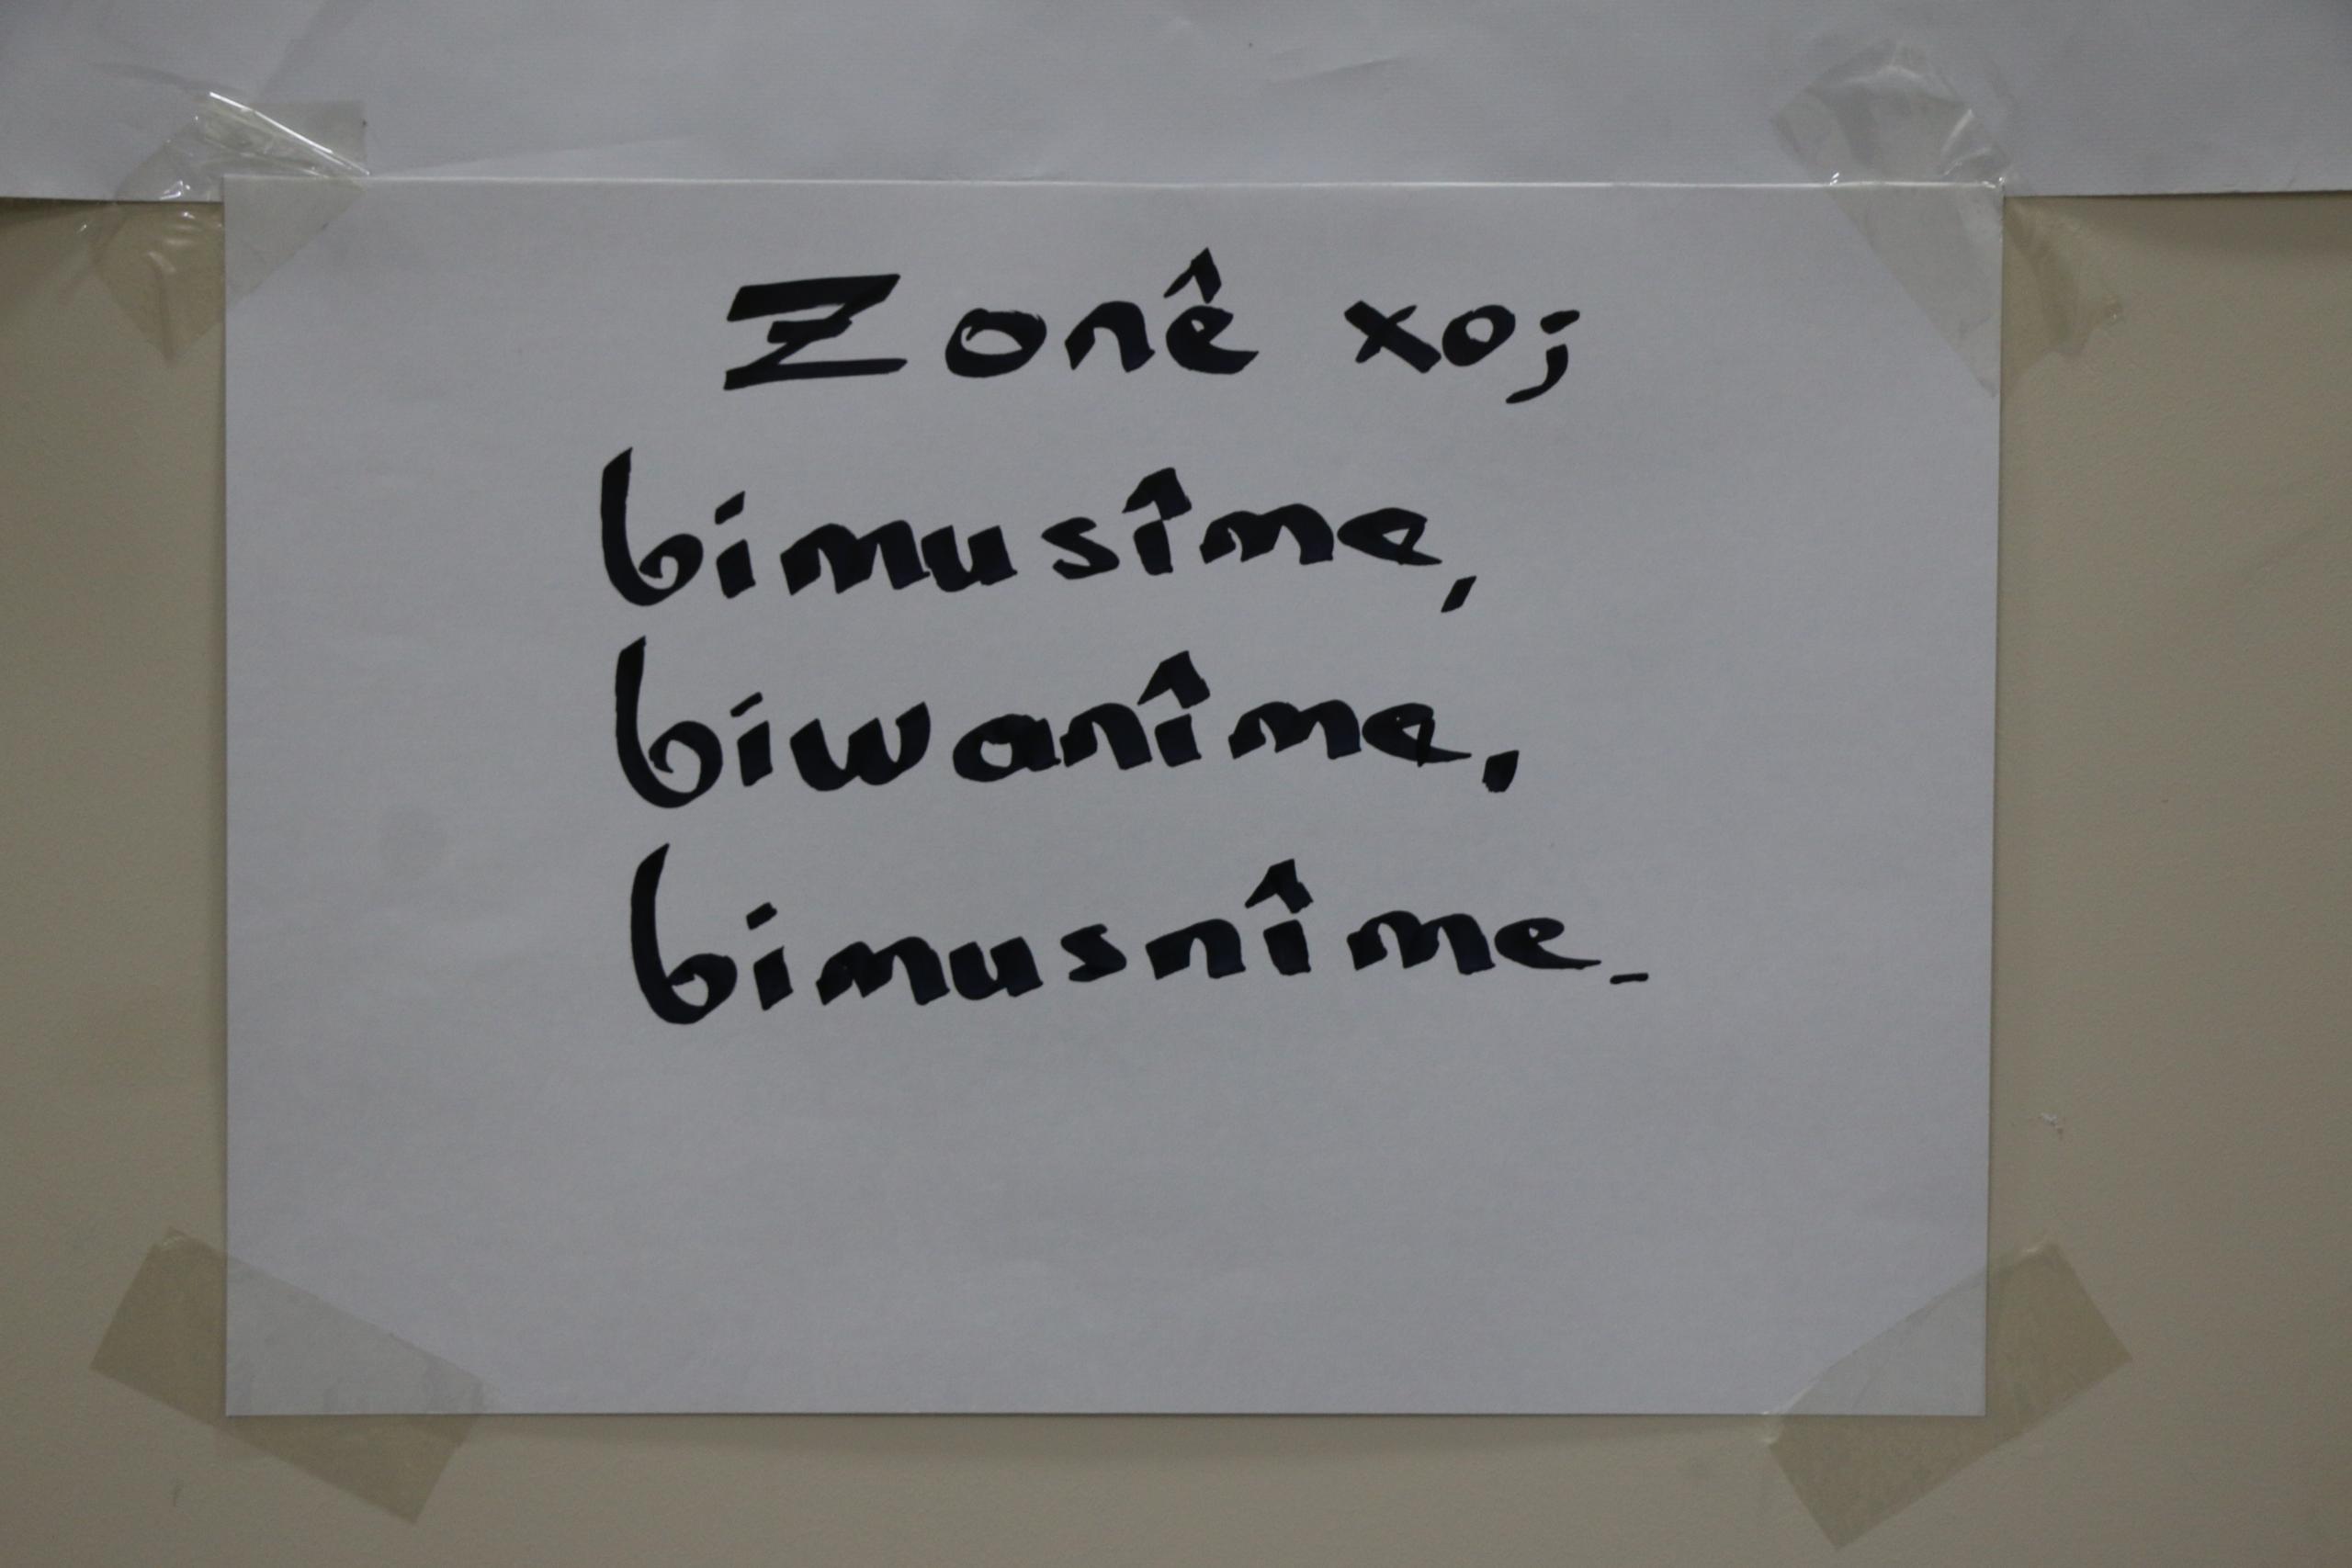 Zonê xo;
bimusîme,
biwanîme,
bimusnîme.